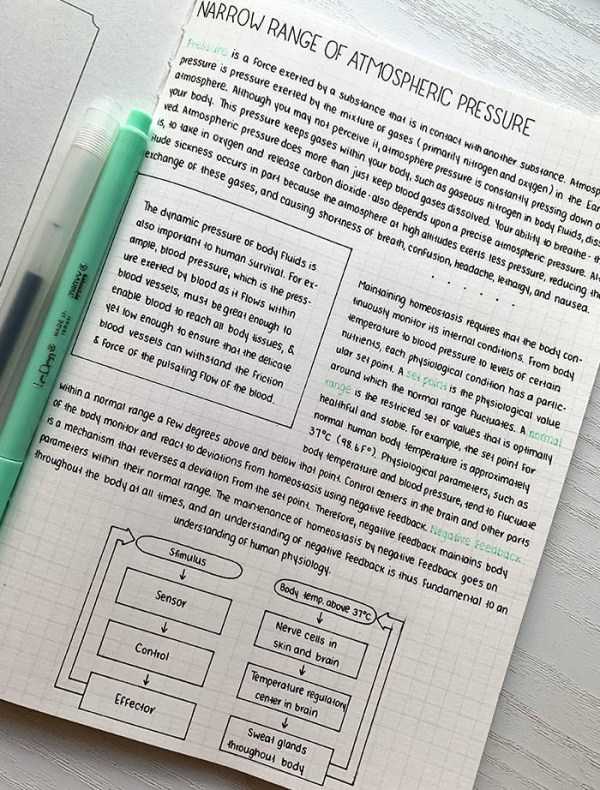 NARROW RANGE OF ATMOSPHERIC PRESSURE
Pressure is a force exerted by a substance that is in contact with another substance. Atmosp
pressure is pressure exerted by the mixture of gases (primarily nitrogen and oxygen) in the Ear
atmosphere. Although you may not perceive it, atmosphere pressure is constantly pressing down o
your body. This pressure keeps gases within your body, such as gaseous nitrogen in body fluids, diss
ved. Atmospheric pressure does more than just keep blood gases dissolved. Your ability to breathe - th
is, to take in oxygen and release carbon dioxide - also depends upon a precise atmospheric pressure. Al
itude sickness occurs in part because the atmosphere at high altitudes exerts less pressure, reducing the
exchange of these gases, and causing shortness of breath, confusion, headache, lethargy, and nausea.
The dynamic pressure of body fluids is
also important to human survival. For ex-
ample, blood pressure, which is the press-
ure exerted by blood as it flows within
blood vessels, must be great enough to
enable blood to reach all body tissues, &
yet low enough to ensure that the delicate
blood vessels can withstand the friction
& force of the pulsating flow of the blood.
Maintaining homeostasis requires that the body con-
tinuously monitor its internal conditions. From body
temperature to blood pressure to levels of certain
nutrients, each physiological condition has a partic-
ular set point. A set point is the physiological value
around which the normal range fluctuates. A normal
range is the restricted set of values that is optimally
healthful and stable. For example, the set point for
normal human body temperature is approximately
37°C (98.6F°). Physiological parameters, such as
body temperature and blood pressure, tend to fluctuate
within a normal range a few degrees above and below that point. Control centers in the brain and other parts
of the body monitor and react to deviations from homeostasis using negative feedback. Negative feedback
is a mechanism that reverses a deviation from the set point. Therefore, negative feedback maintains body
parameters within their normal range. The maintenance of homeostasis by negative feedback goes on
throughout the body at all times, and an understanding of negative feedback is thus fundamental to an
understanding of human physiology.
Stimulus
Sensor
Control
Effector
Body temp. above 37°C
Nerve cells in
skin and brain
Temperature regulatory
center in brain
Sweat glands
throughout body